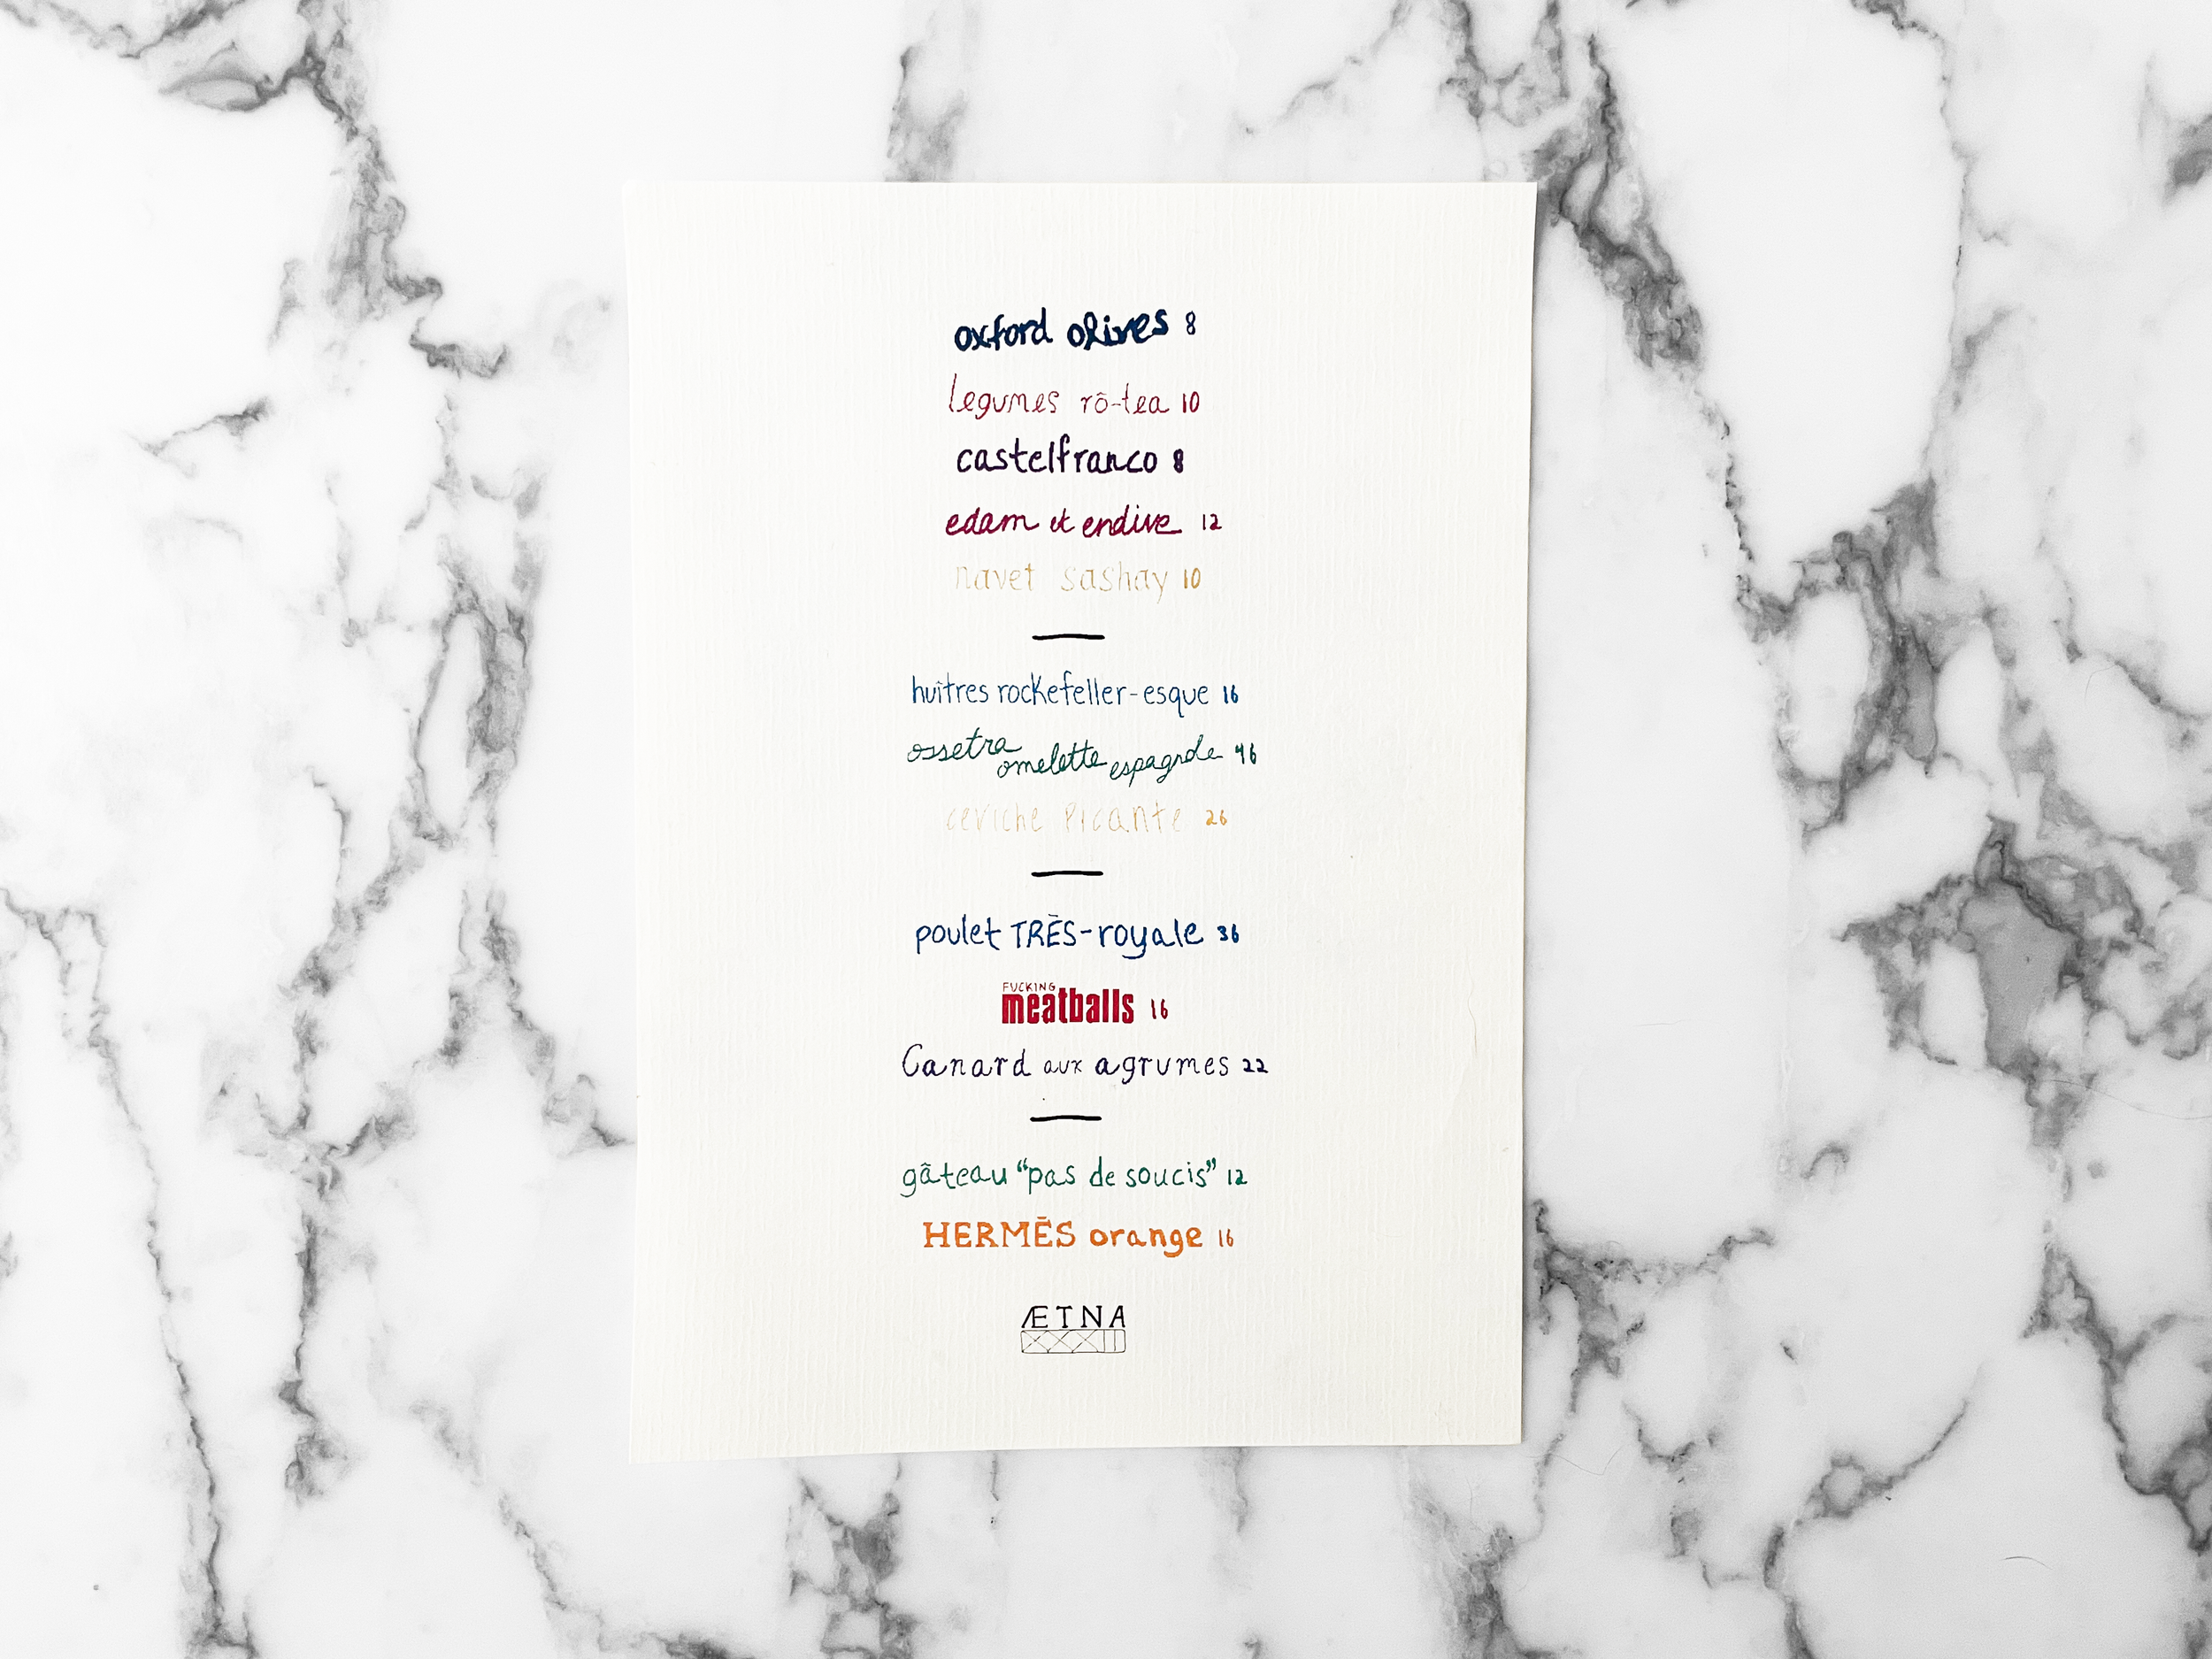 oxford olives 8
legumes rô-tea 10
castelfranco 8
edam et endive 12
navet sashay 10
huîtres rockefeller-esque 16
ossetra omelette espagnole 46
ceviche picante 26
poulet TRÈS-royale 36
FUCKING
meatballs 16
Canard aux agrumes 22
gâteau “pas de soucis” 12
HERMĒS orange 16
ÆTNA
XXXII